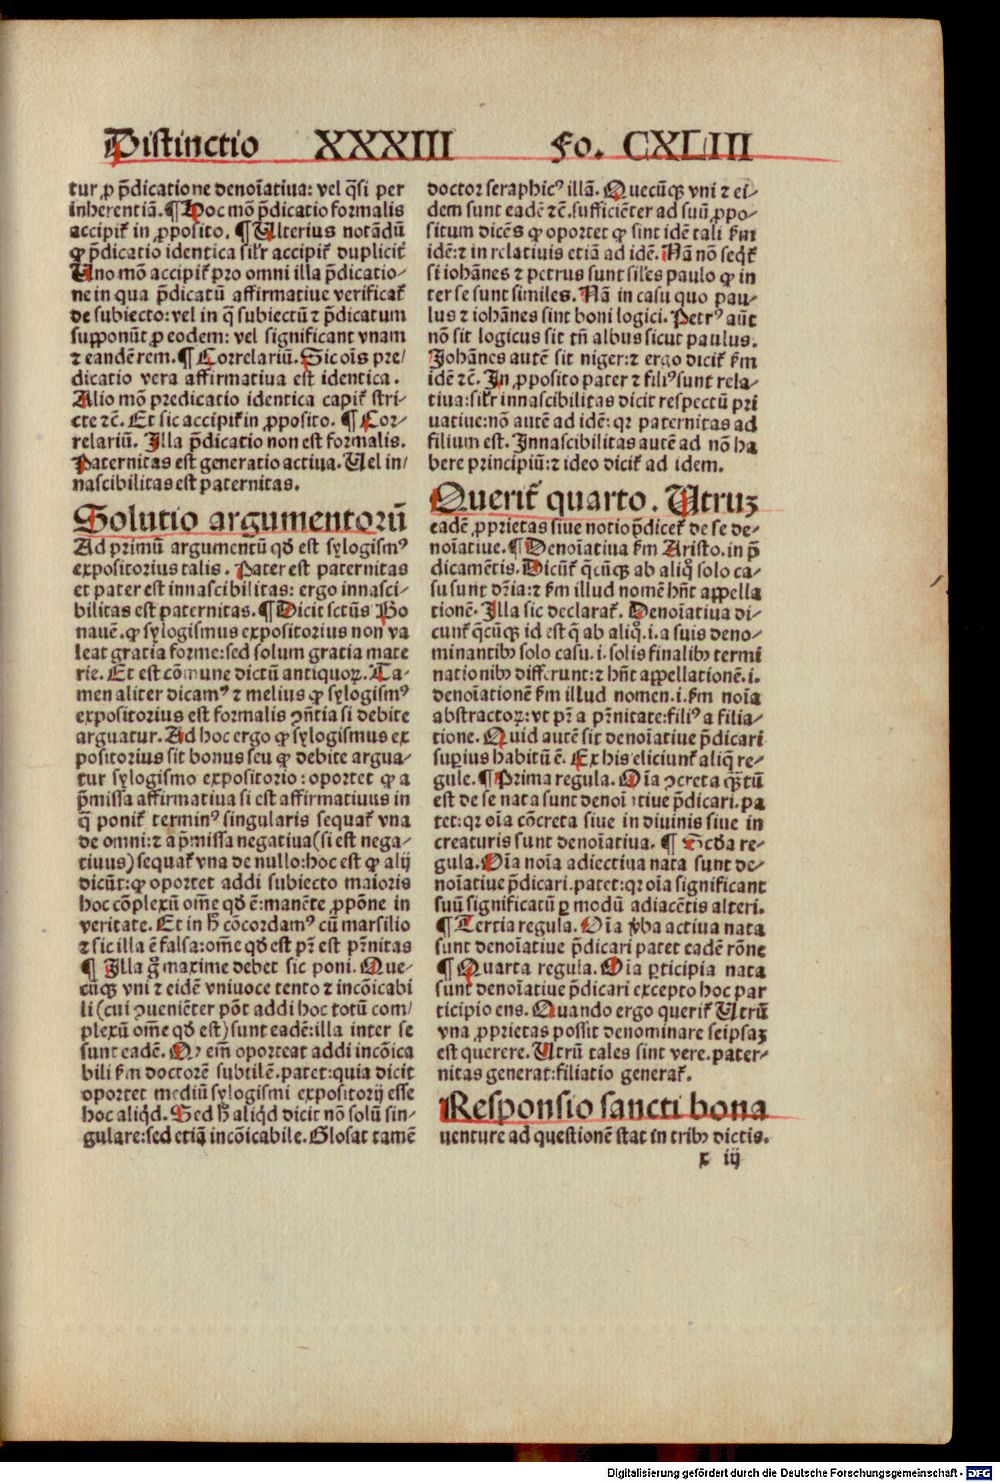 Distinctio XXXIII Fo. CXLIII
tur ꝓ p̄dicatione denoīatiua: vel q̄si per
inherentiā. ¶ Hoc mō p̄dicatio formalis
accipit̄ in ꝓposito. ¶ Ulterius notādū
ꝙ p̄dicatio identica sil'r accipit̄ duplicit̄
Uno mō accipit̄ pro omni illa p̄dicatio⸗
ne in qua p̄dicatū affirmatiue verificat̄
de subiecto: vel in q̄ subiectū ⁊ p̄dicatum
supponūt ꝓ eodem: vel significant vnam
⁊ eandē rem. ¶ Correlariū. Sic oīs pre⸗
dicatio vera affirmatiua est identica.
Alio mō predicatio identica capit̄ stri⸗
cte ⁊c̄. Et sic accipit̄ in ꝓposito. ¶ Cor⸗
relariū. Illa p̄dicatio non est formalis.
Paternitas est generatio actiua. Uel in⸗
nascibilitas est paternitas.
Solutio argumentorū
Ad primū argumentū qd̄ est sylogismꝰ
expositorius talis. Pater est paternitas
et pater est innascibilitas: ergo innasci⸗
bilitas est paternitas. ¶ Dicit sctūs Bo
nauē. ꝙ sylogismus expositorius non va
leat gratia forme: sed solum gratia mate
rie. Et est cōmune dictū antiquoꝝ. Ta⸗
men aliter dicamꝰ ⁊ melius ꝙ sylogismꝰ
expositorius est formalis ꝯn̄tia si debite
arguatur. Ad hoc ergo ꝙ sylogismus ex
positorius sit bonus seu ꝙ debite argua⸗
tur sylogismo expositorio: oportet ꝙ a
p̄missa affirmatiua si est affirmatiuus in
q̄ ponit̄ terminꝰ singularis sequat̄ vna
de omni: ⁊ a p̄missa negatiua (si est nega⸗
tiuus) sequat̄ vna de nullo: hoc est ꝙ alij
dicūt: ꝙ oportet addi subiecto maioris
hoc cōplexū om̄e qd̄ ē: manēte ꝓpōne in
veritate. Et in h̄ cōcordamꝰ cū marsilio
⁊ sic illa ē falsa: om̄e qd̄ est pr̄ est pr̄nitas
¶ Illa g̊ maxime debet sic poni. Que⸗
cūqꝫ vni ⁊ eidē vniuoce tento ⁊ incōicabi
li (cui ꝯueniēter pōt addi hoc totū com⸗
plexū om̄e qd̄ est) sunt eadē: illa inter se
sunt eadē. Qꝫ em̄ oporteat addi incōica
bili ẜm doctorē subtilē. patet: quia dicit
oportet mediū sylogismi expositorij esse
hoc aliqd. Sed h̄ aliqd dicit nō solū sin⸗
gulare: sed etiā incōicabile. Glosat tamē
doctor seraphicꝰ illā. Quecūqꝫ vni ⁊ ei⸗
dem sunt eadē ⁊c̄. sufficiēter ad suū ꝓpo⸗
situm dicēs ꝙ oportet ꝙ sint idē tali ẜm
idē: ⁊ in relatiuis etiā ad idē. Nā nō seqt̄
si iohānes ⁊ petrus sunt sil'es paulo ꝙ in
ter se sunt similes. Nā in casu quo pau⸗
lus ⁊ iohānes sint boni logici. Petrꝰ aūt
nō sit logicus sit tn̄ albus sicut paulus.
Johānes autē sit niger: ⁊ ergo dicit̄ ẜm
idē ⁊c̄. In ꝓposito pater ⁊ filiꝰ sunt rela⸗
tiua: sil'r innascibilitas dicit respectū pri
uatiue: nō autē ad idē: qꝛ paternitas ad
filium est. Innascibilitas autē ad nō ha
bere principiū: ⁊ ideo dicit̄ ad idem.
Querit̄ quarto. Utruꝫ
eadē ꝓprietas siue notio p̄dicet̄ de se de⸗
noīatiue. ¶ Denoīatiua ẜm Aristo. in p̄
dicamētis. Dicūt̄ q̄cūqꝫ ab aliq̊ solo ca⸗
su sunt dr̄ia: ⁊ ẜm illud nomē hn̄t appella
tionē. Illa sic declarat̄. Denoīatiua di⸗
cunt̄ q̄cūqꝫ id est q̄ ab aliq̊. i. a suis deno⸗
minantibꝰ solo casu. i. solis finalibꝰ termi
nationibꝰ differunt: ⁊ hn̄t appellationē. i.
denoīationē ẜm illud nomen. i. ẜm noīa
abstractoꝝ: vt pr̄ a pr̄nitate: filiꝰ a filia⸗
tione. Quid autē sit denoīatiue p̄dicari
suꝑius habitū ē. Ex his eliciunt̄ aliq̄ re⸗
gule. ¶ Prima regula. Oīa ꝯcreta qꝫtū
est de se nata sunt denoīatiue p̄dicari. pa
tet: qꝛ oīa cōcreta siue in diuinis siue in
creaturis sunt denoīatiua. ¶ Scd̄a re⸗
gula. Oīa noīa adiectiua nata sunt de⸗
noīatiue p̄dicari. patet: qꝛ oīa significant
suū significatū ꝑ modū adiacētis alteri.
¶ Tertia regula. Oīa v̄ba actiua nata
sunt denoīatiue p̄dicari patet eadē rōne
¶ Quarta regula. Oīa ꝑticipia nata
sunt denoīatiue p̄dicari excepto hoc par
ticipio ens. Quando ergo querit̄ Utrū
vna ꝓprietas possit denominare seipsaꝫ
est querere. Utrū tales sint vere. pater⸗
nitas generat: filiatio generat̄.
Responsio sancti bona
venture ad questionē stat in tribꝰ dictis.
x iij
Digitalisierung gefördert durch die Deutsche Forschungsgemeinschaft - DFG